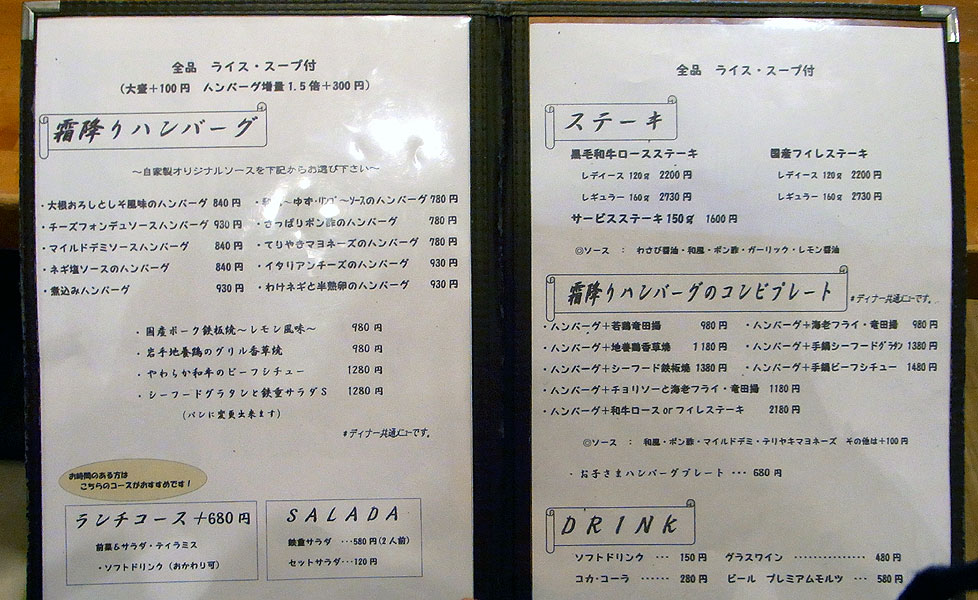 全品 ライス・スープ付
(大盛+100円 ハンバーグ増量1.5倍+300円)
霜降りハンバーグ
～自家製オリジナルソースを下記からお選び下さい～
・大根おろしとしそ風味のハンバーグ 840円
・チーズフォンデュソースハンバーグ 930円
・マイルドデミソースハンバーグ 840円
・ネギ塩ソースのハンバーグ 840円
・煮込みハンバーグ 930円
～ゆず・リンゴ～ソースのハンバーグ 780円
・さっぱりポン酢のハンバーグ 780円
・てりやきマヨネーズのハンバーグ 780円
・イタリアンチーズのハンバーグ 930円
・わけネギと半熟卵のハンバーグ 930円
・国産ポーク鉄板焼～レモン風味～ 980円
・岩手地養鶏のグリル香草焼 980円
・やわらか和牛のビーフシチュー 1280円
・シーフードグラタンと鉄重サラダS 1280円
(パンに変更出来ます)
#ディナー共通メニューです。
お時間のある方は
こちらのコースがおすすめです！
ランチコース+680円
前菜&サラダ・ティラミス
・ソフトドリンク(おかわり可)
SALADA
鉄重サラダ ･･･580円(2人前)
セットサラダ･･･120円
全品 ライス・スープ付
ステーキ
黒毛和牛ロースステーキ
レディース 120g 2200円
レギュラー 160g 2730円
国産フィレステーキ
レディース 120g 2200円
レギュラー 160g 2730円
サービスステーキ150g 1600円
◎ソース : わさび醤油・和風・ポン酢・ガーリック・レモン醤油
霜降りハンバーグのコンビプレート
#ディナー共通メニューです。
・ハンバーグ+若鶏竜田揚 980円
・ハンバーグ+地養鶏香草焼 1180円
・ハンバーグ+シーフード鉄板焼 1380円
・ハンバーグ+チョリソーと海老フライ・竜田揚 1180円
・ハンバーグ+和牛ロースorフィレステーキ 2180円
・ハンバーグ+海老フライ・竜田揚 980円
・ハンバーグ+手鍋シーフードグラタン 1380円
・ハンバーグ+手鍋ビーフシチュー 1480円
◎ソース : 和風・ポン酢・マイルドデミ・テリヤキマヨネーズ その他は+100円
・お子さまハンバーグプレート ･･･ 680円
DRINK
ソフトドリンク ･･･ 150円
コカ・コーラ ･･････ 280円
グラスワイン ････････････････ 480円
ビール プレミアムモルツ ･･･ 580円